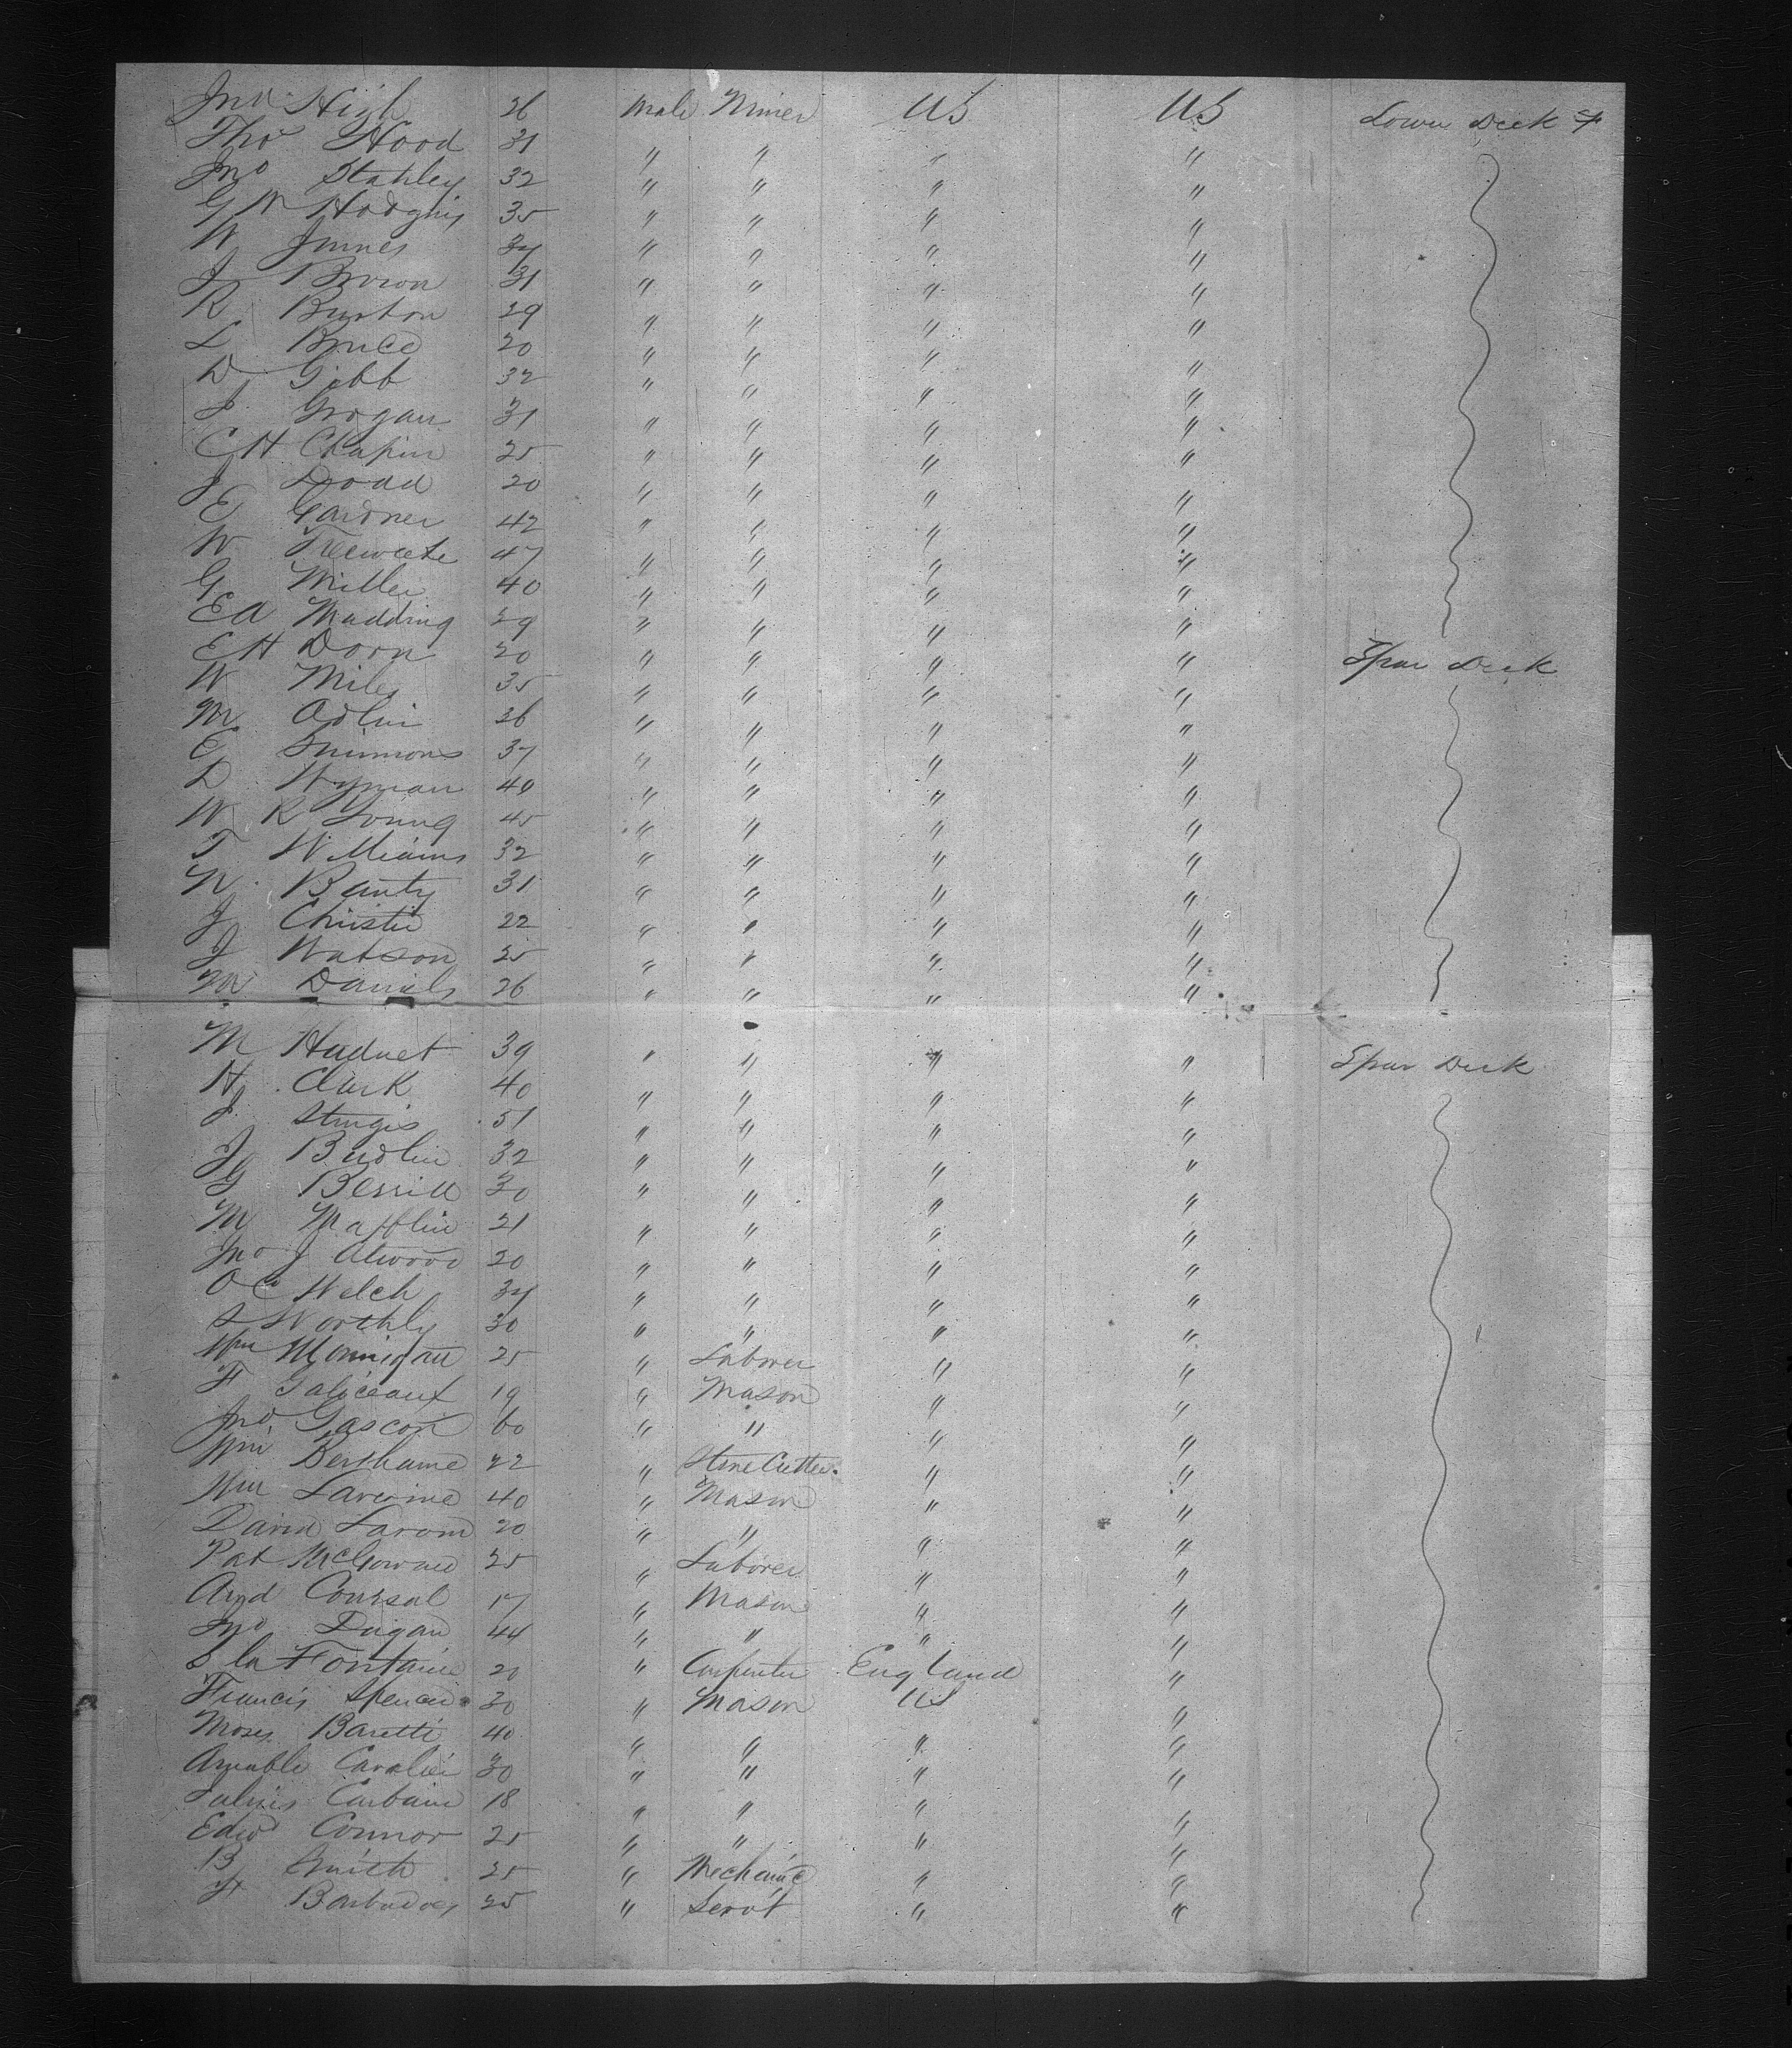 Jno High 26 Male Miner US US Lower Deck
Thos Hood 31 " " " "
Jno Stahley 32 " " " "
G W Hodgins 35 " " " "
W Jnnes 34 " " " "
J Brown 31 " " " "
R Burton 29 " " " "
L Bruce 20 " " " "
D Gibb 32 " " " "
J Grogan 31 " " " "
C H Chapin 25 " " " "
J Doad 20 " " " "
E Gardner 42 " " " "
W 47 " " " "
G Miller 40 " " " "
E A Madding 29 " " " "
E H Dorn 20 " " " " Spar Deck
W Miles 35 " " " "
M Adlin 26 " " " "
E Simmons 37 " " " "
D Wyman 40 " " " "
W R Young 45 " " " "
T Williams 32 " " " "
N Banty 31 " " " "
J Christie 22 " " " "
J Watson 25 " " " "
M Daniels 26 " " " "
M Hadnet 39 " " " " Spar Deck
H Clark 40 " " " "
J Sturgis 51 " " " "
J Budlin 32 " " " "
G Berrill 30 " " " "
M Mafflin 21 " " " "
Jno J Atwood 20 " " " "
O C Welch 34 " " " "
S Worthly 30 " " " "
Wm Monnigan 25 " Laborer " "
F Galiceaux 19 " Mason " "
Jno Gascon 60 " " " "
Wm Berthame 22 " Stone Cutter " "
Wm Laverine 40 " Mason " "
David Larom 20 " " " "
Pat McGowne 25 " Laborer " "
Amd Coursal 17 " Mason " "
Jno Dugan 44 " " " "
S la Fontaine 20 " Carpenter England "
Francis Spencer 30 " Mason US "
Moses Baretti 40 " " " "
Amable Cavalier 30 " " " "
Carbain 18 " " " "
Edwd Connor 25 " " " "
B Smith 25 " Mechanic " "
H Barbadoes 25 " Servt " "